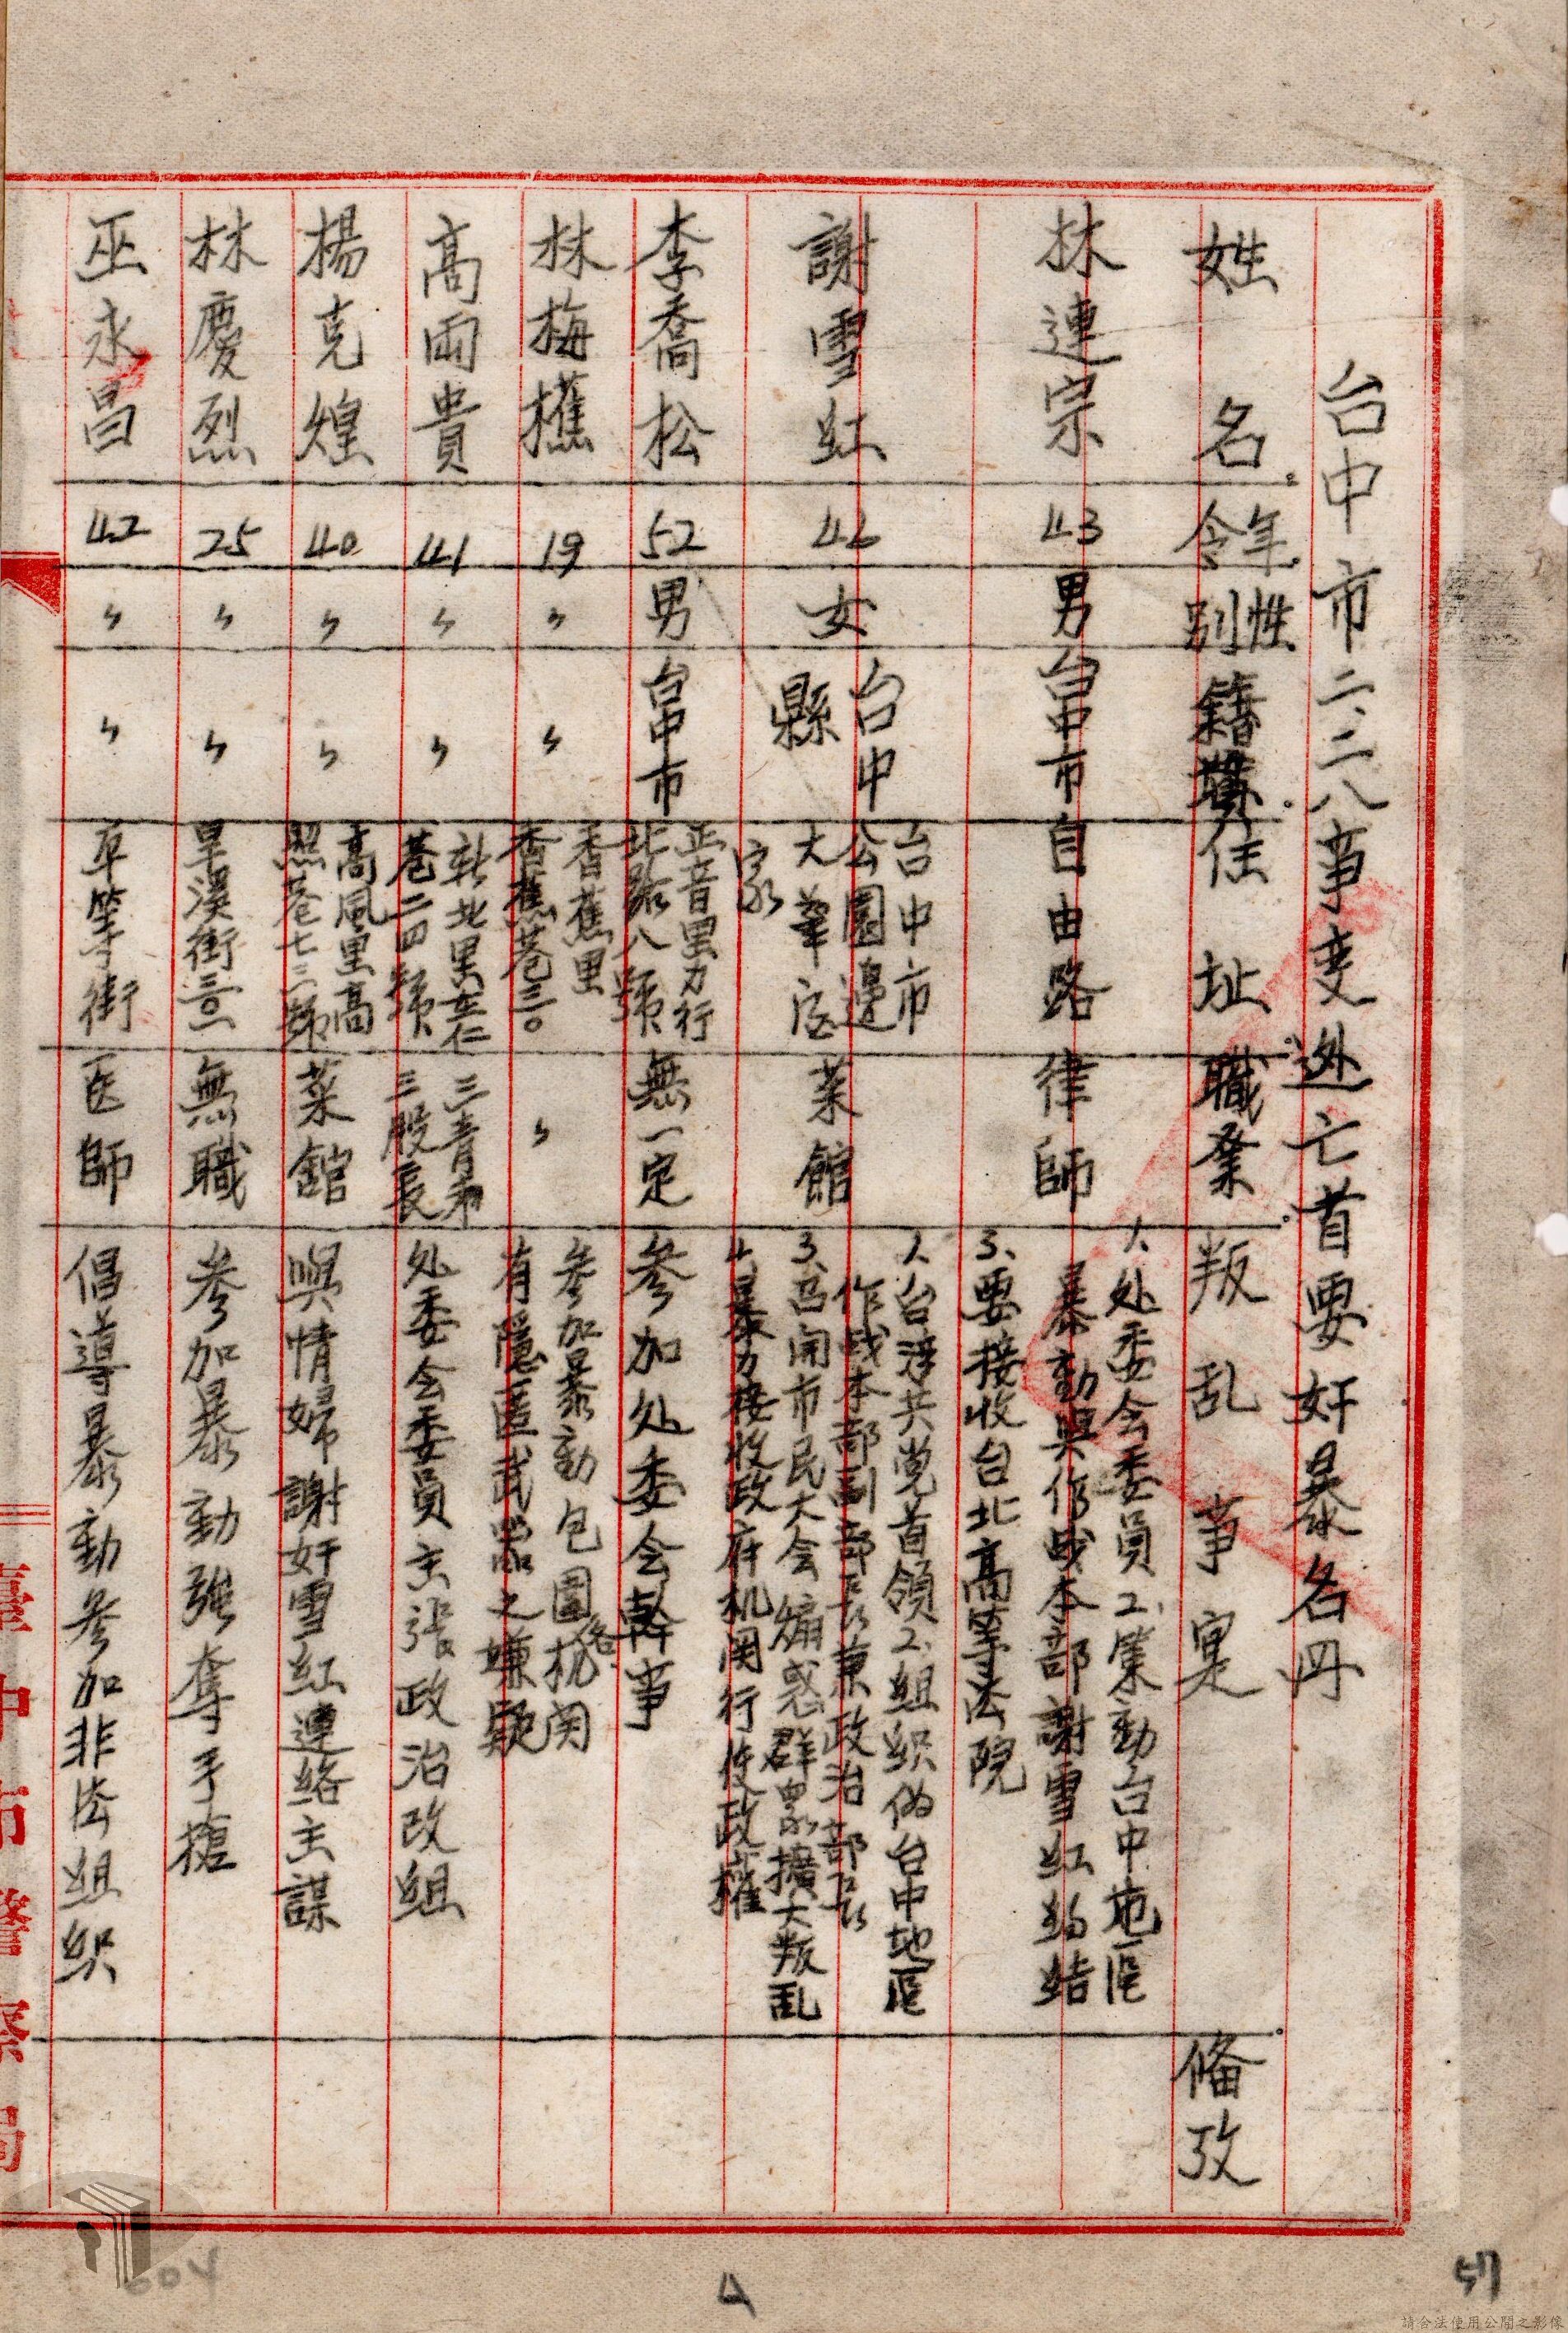 台中市二、二八事变逃亡首要奸暴名冊
姓名 年令 性別 籍貫 住址 職業 叛乱事実 俻攷
林連宗 43 男 台中市 自由路 律師 1、处委会委員2、策動台中地区
暴動與作战本部謝雪紅約结
3、要接收台北高等法院
謝雪紅 46 女 台中縣 台中市公園邊大華酒家 菜館 1、台湾共党首領2、組织伪台中地区
作战本部副部長兼政治部長
3、召開市民大会煽惑群眾擴大叛乱
4、暴力接收政府机関行使政權
李喬松 52 男 台中市 正音里力行北路八號 無一定 参加处委会幹事
林梅樵 19 〃 〃 香蕉里香蕉巷三〇 〃 参加暴動包圍各机関
有隱匿武器之嫌疑
高雨貴 41 〃 〃 新北里存仁巷二四號 三青第三股長 处委会委員主張政治改組
楊克煌 40 〃 〃 高風里高照巷七三號 菜舘 與情婦謝奸雪紅連絡主謀
林慶烈 25 〃 〃 旱溪街三〇一 無職 参加暴動強奪手槍
巫永昌 42 〃 〃 平等街 医師 倡導暴動参加非法組织
臺中市警察局
004
4
請合法使用公開之影像